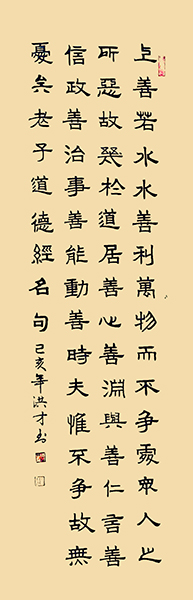 上善若水水善利萬物而不争處眾人之
所惡故幾於道居善心善淵與善仁言善
信政善治事善能動善時夫惟不争故無
憂矣老子道德經名句己亥年洪才书